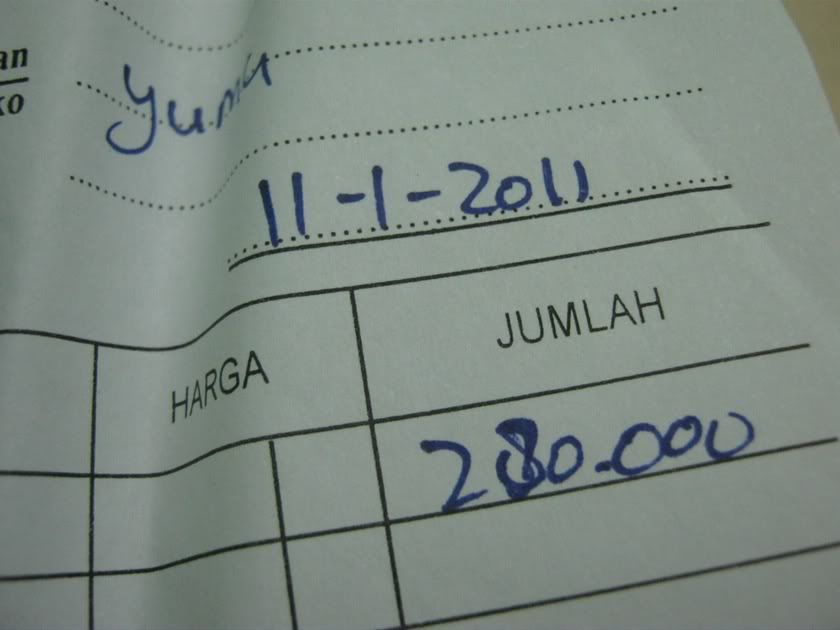 an
ko
Yuma
11-1-2011
HARGA JUMLAH
280.000